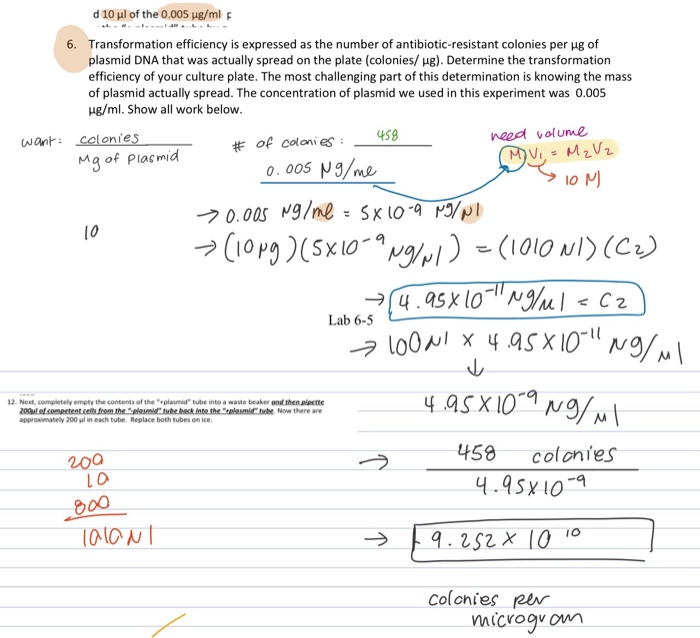 d 10 µl of the 0.005 µg/ml p
6. Transformation efficiency is expressed as the number of antibiotic-resistant colonies per µg of
plasmid DNA that was actually spread on the plate (colonies/ µg). Determine the transformation
efficiency of your culture plate. The most challenging part of this determination is knowing the mass
of plasmid actually spread. The concentration of plasmid we used in this experiment was 0.005
µg/ml. Show all work below.
want: colonies
Mg of plasmid
# of colonies: 458
0.005 µg/ml
need volume
M₁V₁ = M₂V₂
→ 10 µl
→ 0.005 µg/ml = 5x10⁻⁹ µg/µl
10
→ (10µg)(5x10⁻⁹ µg/µl) = (1010 µl)(C₂)
→ 4.95x10⁻¹¹ µg/µl = C₂
Lab 6-5
→ 100µl x 4.95x10⁻¹¹ µg/µl
↓
4.95x10⁻⁹ µg/µl
12. Next, completely empty the contents of the "+plasmid" tube into a waste beaker and then pipette
200µl of competent cells from the "-plasmid" tube back into the "+plasmid" tube. Now there are
approximately 200 µl in each tube. Replace both tubes on ice.
200
10
800
1010µl
→ 458 colonies
4.95x10⁻⁹
→ 9.252 x 10¹⁰
colonies per
microgram